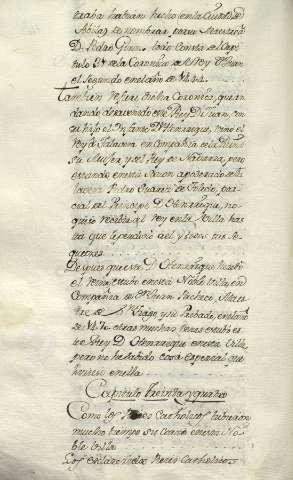 trava habian hecho en la Ciudad de
Abila, de nombrar para Maestre a
D. Pedro Giron. Todo consta del Capi
tulo de la Coronica del Rey D. Juan
el segundo en el año de 1444.
Tambien refiere dicha Coronica, que an
dando desavenido este Rey D. Juan, con
su hijo el Infante D. Henrrique, vino el
rey a Talavera en Compañia de la Reina
su Muger, y del Rey de Navarra, pero
estando en esta sazon apoderado de Ta
lavera Pedro Suarez de Toledo, par
cial del Principe D. Henrrique, no
quiso recibir al rey en la Villa has
ta que le perdonó a el y a todos sus se
quaces.
Despues que este D. Henrrique heredó
el Reino, estubo en esta Noble Villa en
Compañia de D. Juan Pacheco, Maes
tre de Santiago y su Pribado, en el año
de 147 otras muchas veces estubo es
te Rey D. Henrrique en esta Villa,
pero no ha habido cosa especial que
hiciese en ella.
Capitulo treinta y quatro
Como los Reyes Catholicos tubieron
mucho tiempo su Corte en esta No
ble Villa.
Los esclarecidos Reies Catholicos